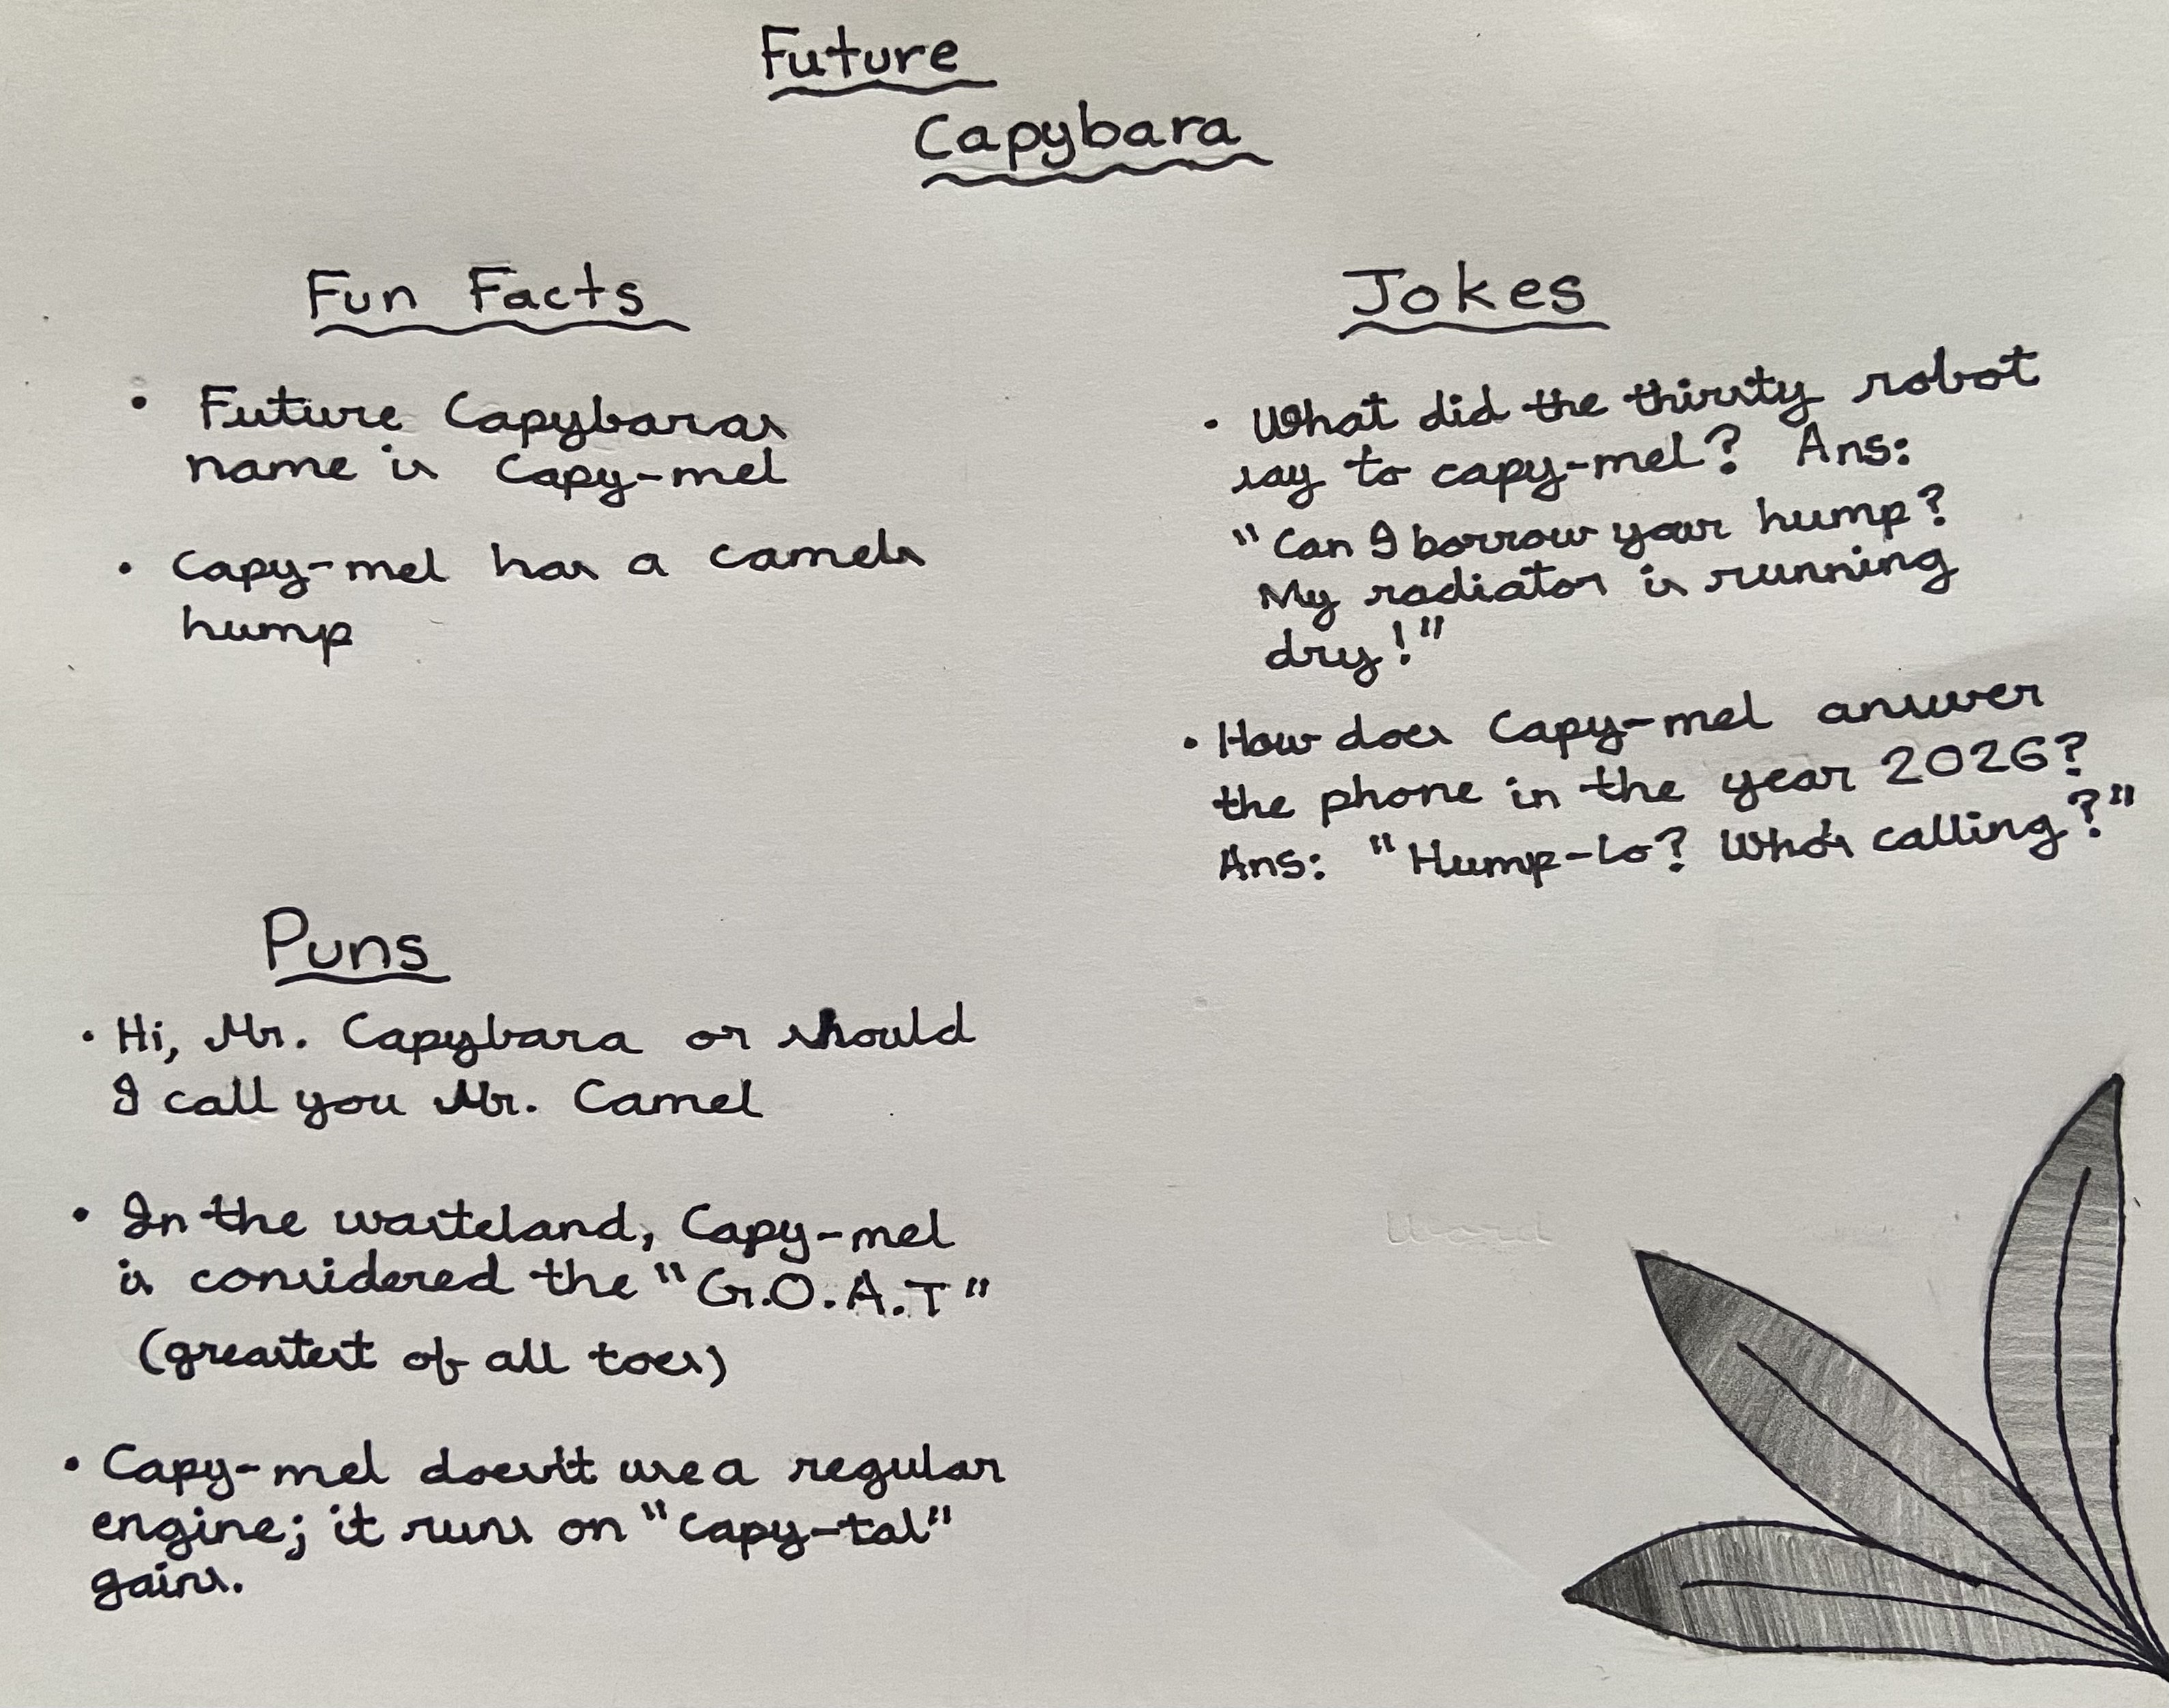 Future
Capybara
Fun Facts
• Future Capybaras
name is Capy-mel
• Capy-mel has a camels
hump
Jokes
• What did the thirsty robot
say to capy-mel? Ans:
"Can I borrow your hump?
My radiator is running
dry!"
• How does Capy-mel answer
the phone in the year 2026?
Ans: "Hump-lo? Who's calling?"
Puns
• Hi, Mr. Capybara or should
I call you Mr. Camel
• In the wasteland, Capy-mel
is considered the "G.O.A.T"
(greastest of all toes)
• Capy-mel doesn't use a regular
engine; it runs on "capy-tal"
gains.